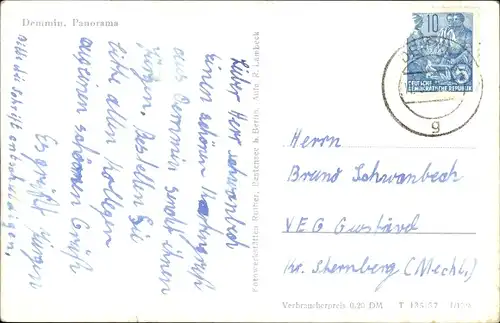 Demmin. Panorama
Lieber Herr Schwanbeck
einen schönen Kartengruß
aus Demmin sendet ihnen
Jürgen. Bestellen Sie
bitte allen Kollegen
auch einen schönen Gruß
Es grüßt Jürgen
Bitte die Schrift entschuldigen.
10
DEUTSCHE
DEMOKRATISCHE REPUBLIK
g
Herrn
Bruno Schwanbeck
VEG Gustävel
Kr. Sternberg (Meckl.)
Verbraucherpreis 0,20 DM T 135/57